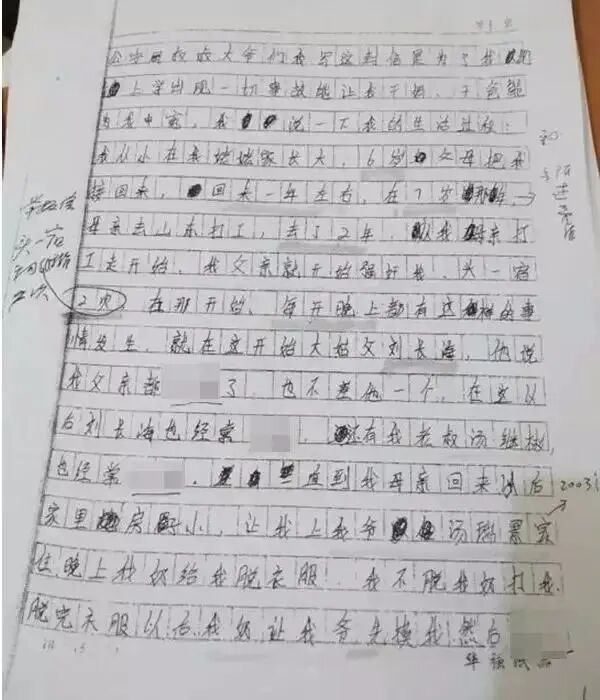 第 页
公安局叔叔大爷们我写这封信是为了我
上学出现一切事故能让我干妈、干爸能
为我申冤，我说一下我的生活过程：
我从小在我姥姥家长大，6岁父母把我
接回来，回来一年左右，在7岁那年，
母亲去山东打工，去了2年，从我母亲打
工走开始，我父亲就开始强奸我，头一宿
2次，在那开始，每天晚上都有这样的事
情发生，就在这开始大姑父刘长海，他说
我父亲都 了，也不差他一个，在这以
后刘长海也经常 ，还有我老叔汤继彬，
也经常 ，一直到我母亲回来以后
2003
家里房子小，让我上我爷汤瑞景家
住晚上我奶给我脱衣服，我不脱我奶打我，
脱完衣服以后我奶让我爷先 我然后
头一宿
2次